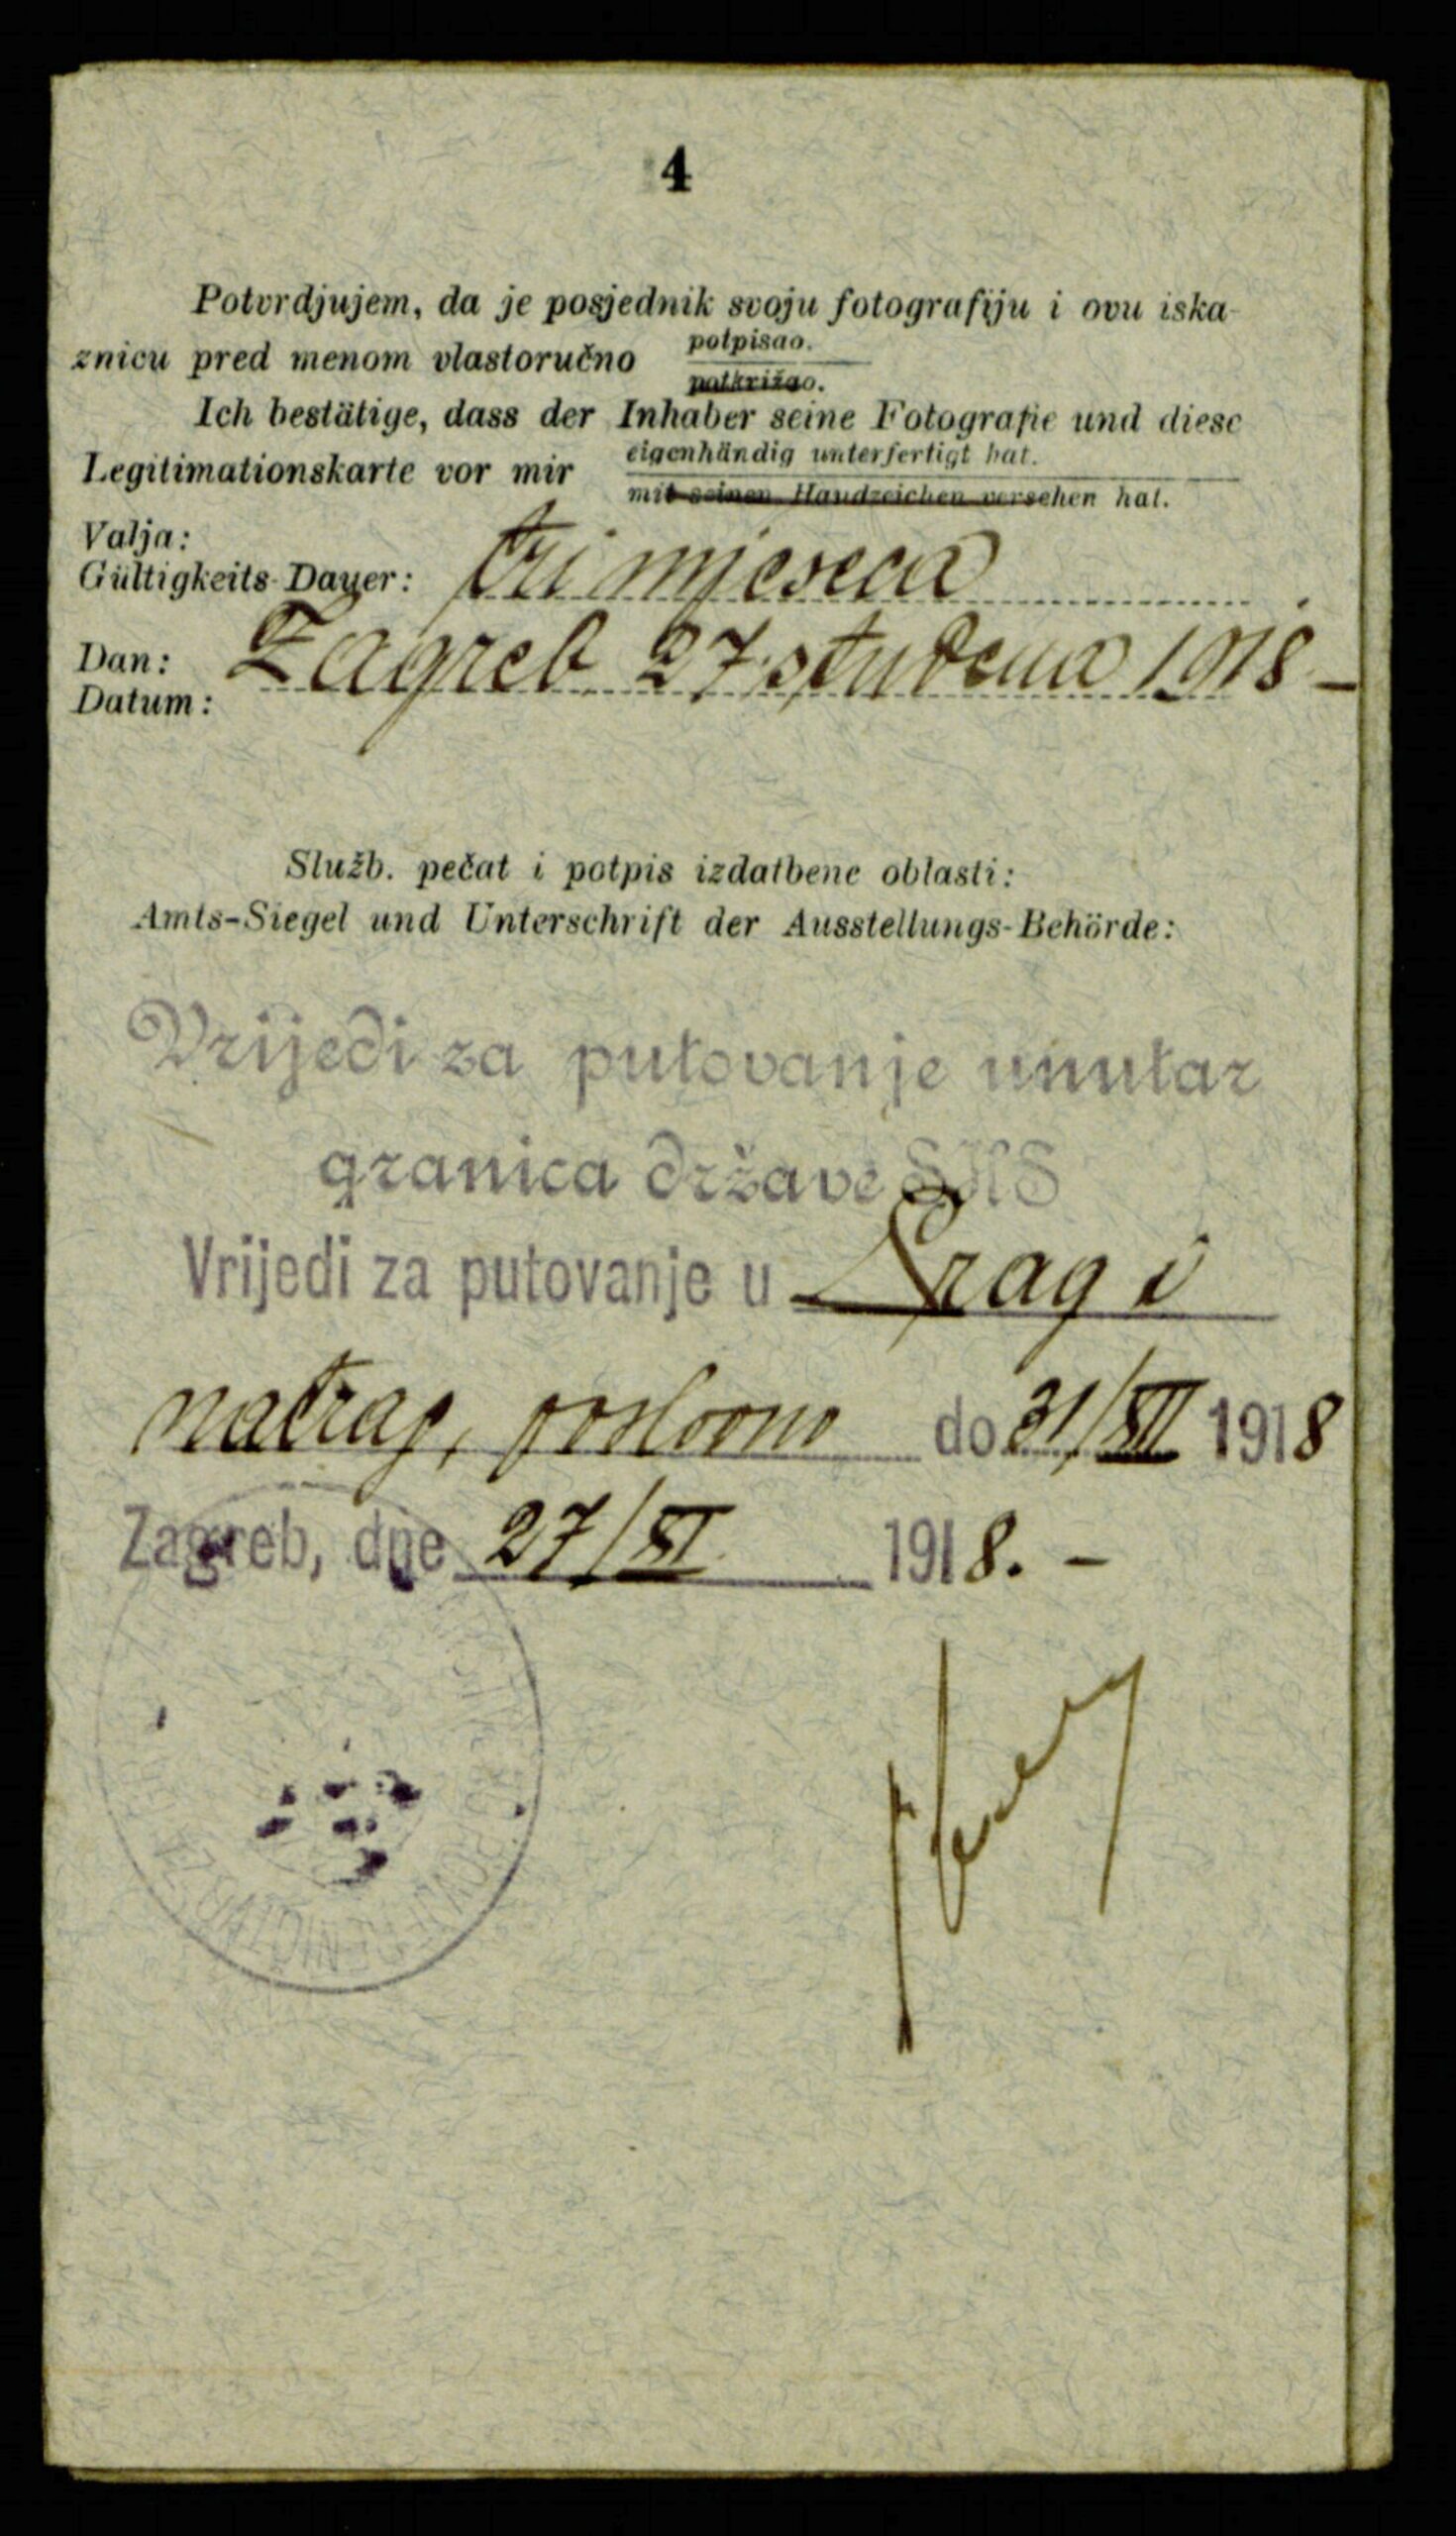 4
Potvrdjujem, da je posjednik svoju fotografiju i ovu iska-
znicu pred menom vlastoručno potpisao.
potkrižao.
Ich bestätige, dass der Inhaber seine Fotografie und diese
Legitimationskarte vor mir eigenhändig unterfertigt hat.
mit seinen Handzeichen versehen hat.
Valja:
Gültigkeits-Dauer: tri mjeseca
Dan: Zagreb 27 studena 1918 –
Datum:
Služb. pečat i potpis izdatbene oblasti:
Amts-Siegel und Unterschrift der Ausstellungs-Behörde:
Vrijedi za putovanje unutar
granica države SHS
Vrijedi za putovanje u Prag i
natrag, poslovno do 31/XII 1918
Zagreb, dne 27/XI 1918. –